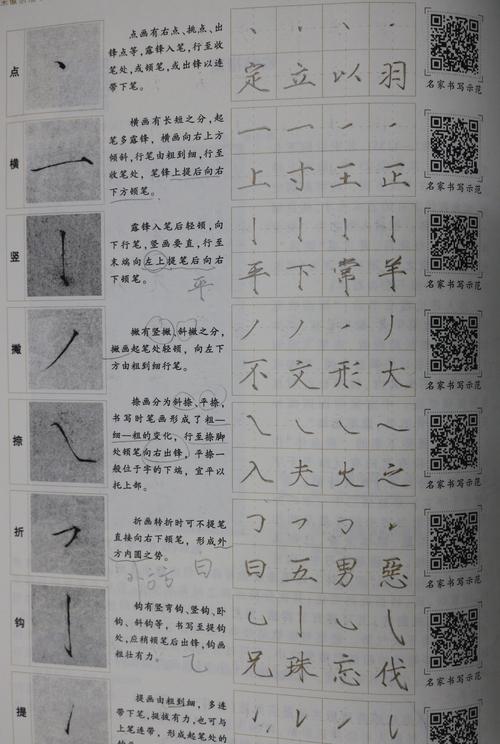 点
点画有右点、挑点、出
锋点等，露锋入笔，行至收
笔处，或顿笔，或出锋以连
带下笔。
定 立 以 羽
名家书写示范
横
横画有长短之分，起
笔多露锋，横画向右上方
倾斜，行笔由粗到细，行至
收笔处，笔锋上提后向右
下方顿笔。
上 寸 王 正
名家书写示范
竖
露锋入笔后轻顿，向
下行笔，竖画要直，行至
末端向左上提笔后向右
下顿笔。
平
平 下 常 羊
名家书写示范
撇
撇有竖撇、斜撇之分，
撇画起笔处轻顿，向左下
方由粗到细行笔。
不 文 形 大
名家书写示范
捺
捺画分为斜捺、平捺，
书写时笔画形成了粗—
细—粗的变化，行至捺脚
处顿笔向右出锋，平捺一
般位于字的下端，宜平以
托上部。
入 夫 火 之
名家书写示范
折
折画转折时可不提笔
直接向右下顿笔，形成外
方内圆之势。
曰
曰 五 男 恶
名家书写示范
钩
钩有竖弯钩、竖钩、卧
钩、斜钩等，书写至提钩
处，应稍顿笔后出锋，钩画
粗壮有力。
兄 珠 忘 伐
名家书写示范
提
提画由粗到细，多连
带下笔，挺拔有力，也可与
上笔连带，形成起笔处的